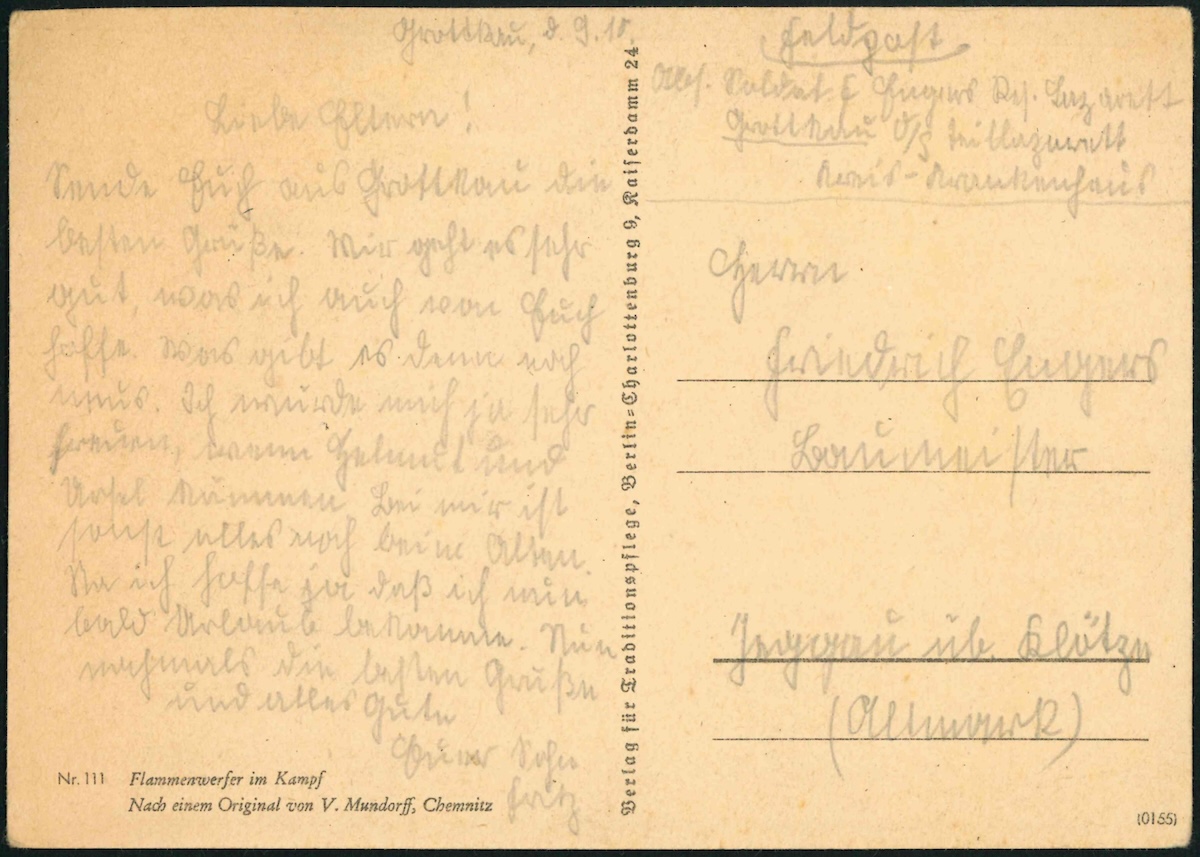 Grottkau, d. 9.10.
Liebe Eltern!
Sende Euch aus Grottkau die
besten Grüße. Mir geht es sehr
gut, was ich auch von Euch
hoffe. Was gibt es denn noch
neues. Ich würde mich ja sehr
freuen, wenn Helmut und
Ursel kämmen. Bei mir ist
sonst alles noch beim Alten.
Na ich hoffe ja daß ich nun
bald Urlaub bekomme. Nun
nochmals die besten Grüße
und alles Gute
Euer Sohn
Fritz
Nr. 111 Flammenwerfer im Kampf
Nach einem Original von V. Mundorff, Chemnitz
Verlag für Traditionspflege, Berlin-Charlottenburg 9, Kaiserdamm 24
Feldpost
Abs. Soldat Engers Res. Lazarett
Grottkau O/S Teillazarett
Kreis-Krankenhaus
Herrn
Friedrich Engers
Baumeister
Jeggau üb. Klötze
(Altmark)
(0155)